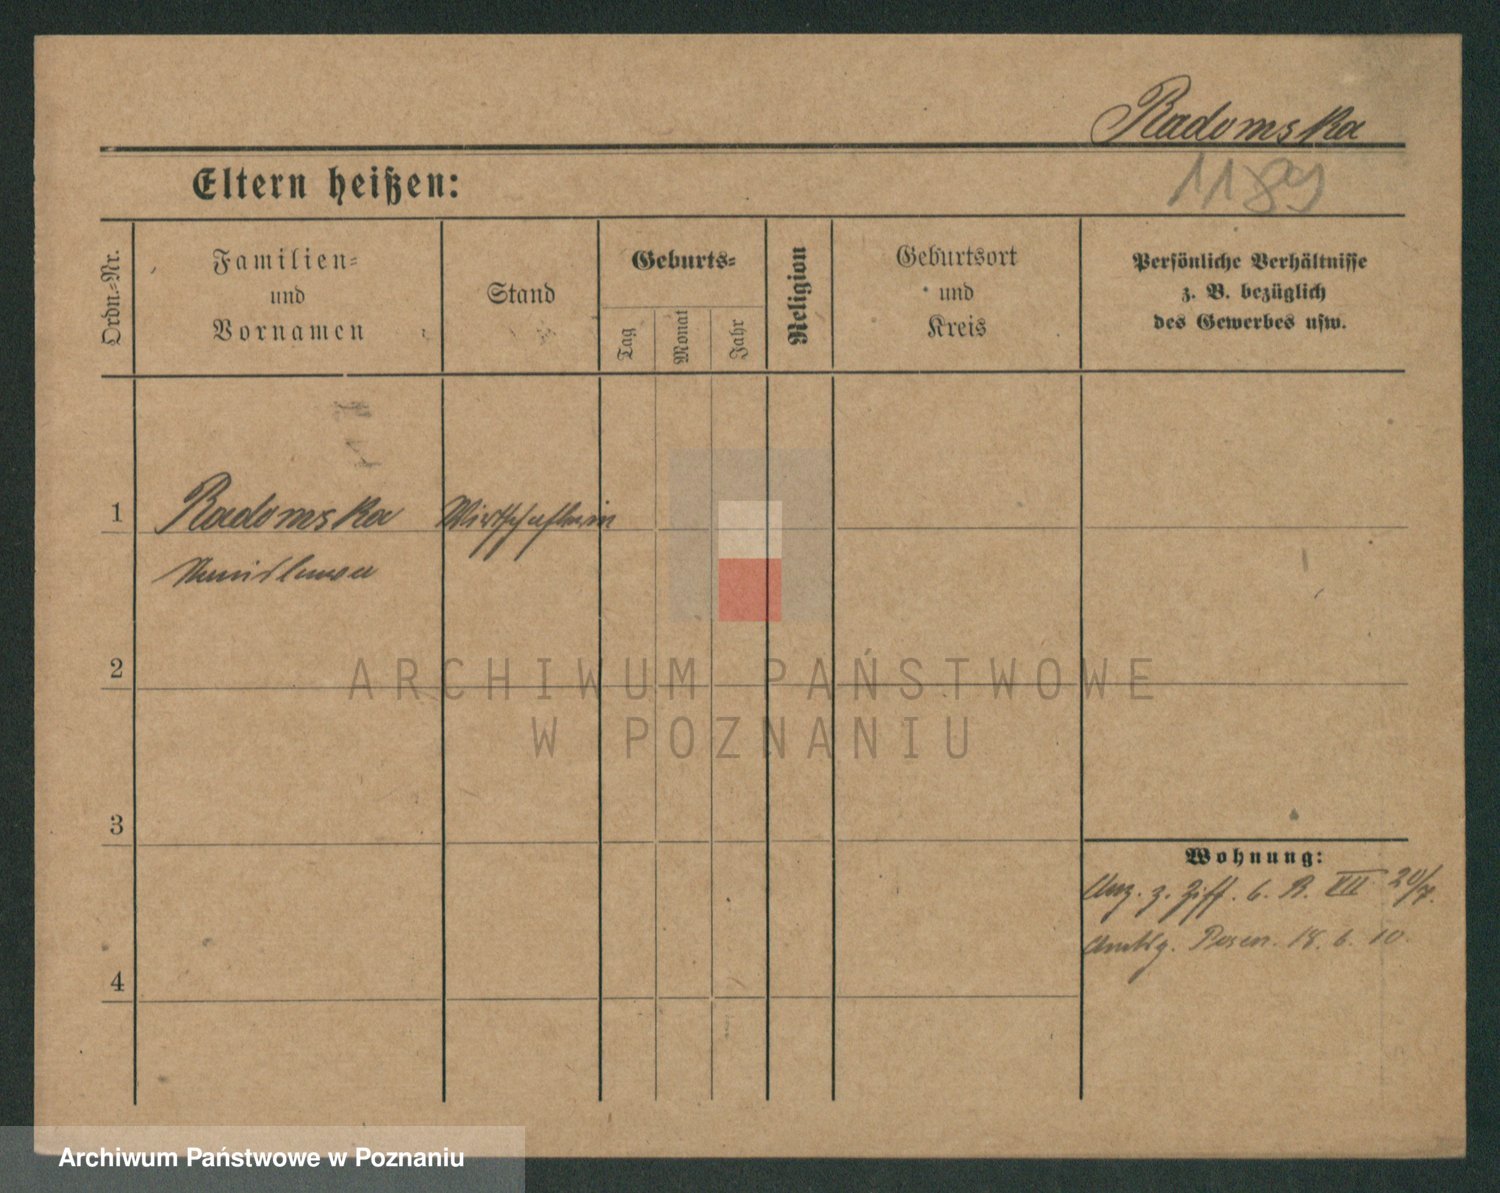 Radomska
1189
Eltern heißen:
Ordn.-Nr.
Familien-
und
Vornamen
Stand
Geburts-
Tag
Monat
Jahr
Religion
Geburtsort
und
Kreis
Persönliche Verhältnisse
z. B. bezüglich
des Gewerbes usw.
1
Radomska
Wirtschafterin
2
3
4
Wohnung:
z. Ziff. 6. B. VII 20/7.
Posen. 18. 6. 10.
ARCHIWUM PAŃSTWOWE
W POZNANIU
Archiwum Państwowe w Poznaniu